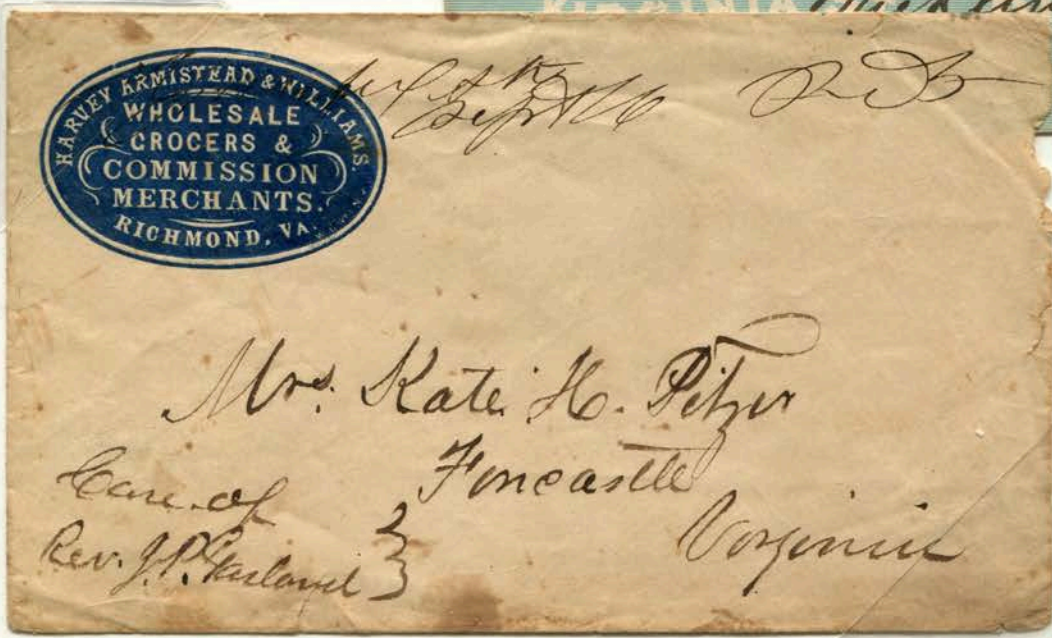 VIRGINIA
HARVEY ARMISTEAD & WILLIAMS.
WHOLESALE
GROCERS &
COMMISSION
MERCHANTS.
RICHMOND, VA.
Sept
Mrs. Kate H. Pitzer
Fincastle
Virginia
Care of
Rev. J. P. Garland